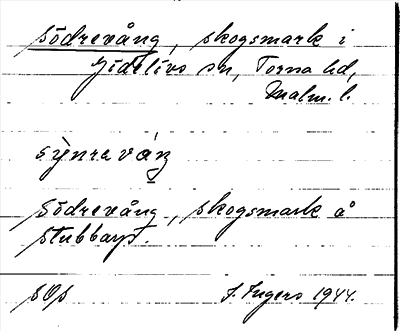 Södrevång, skogsmark i
Gödelövs sn, Torna hd,
Malm. l.
sỳnra váŋ
Södrevång, skogsmark å
Stubbarp.
sOs
I. Ingers 1944.